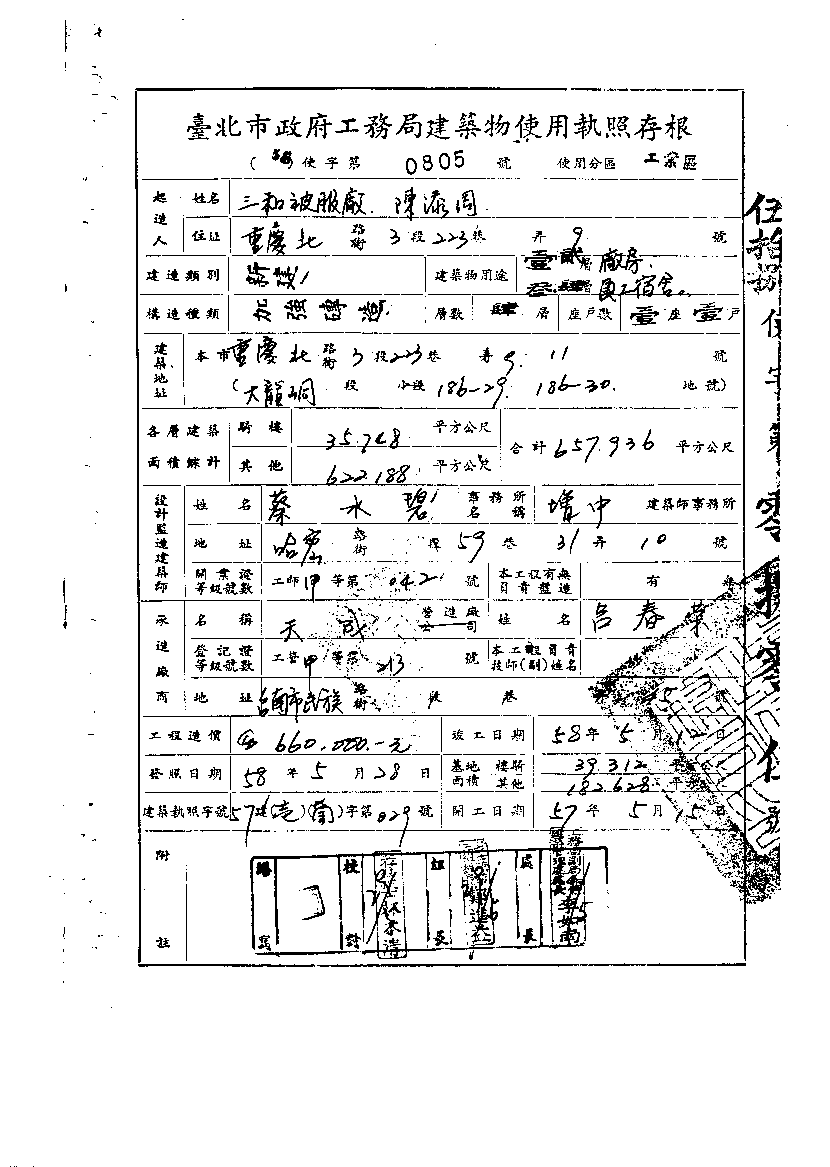 臺北市政府工務局建築物使用執照存根
(58)使字第 0805 號 使用分區 工業區
起造人 姓名 三和被服廠 陳添周
住址 重慶北 路街 3 段 223 巷 弄 9 號
建造類別 新建 建築物用途 壹貳層 廠房. 叁.肆層 員工宿舍.
構造種類 加強磚造 層數 肆 層 座戶數 壹 座 壹 戶
建築地址 本市 重慶北 路街 3 段 223 巷 弄 9. 11 號
(大龍峒 段 小段 186-29. 186-30. 地號)
各層建築面積綜計 騎樓 35.748 平方公尺 合計 657.936 平方公尺
其他 622.188 平方公尺
設計監造建築師 姓名 蔡水碧 事務所名稱 增中 建築師事務所
地址 哈密 路街 段 59 巷 31 弄 10 號
開業證等級號數 工師 甲 等第 042 號 本工程有無負責監造 有 無
承造廠商 名稱 天成 營造廠公司 姓名 呂春榮
登記證等級號數 工營 甲 等第 213 號 本工程負責技師(副)姓名
地址 台南市民族 路街 段 巷 號
工程造價 660.000.-元 竣工日期 58年 5 月 12 日
發照日期 58 年 5 月 28 日 基地面積 騎樓 39.312 其他 182.628
建築執照字號 57 建(壱)(蘭)字第 029 號 開工日期 57 年 5 月 15 日
附註
繕寫 校對 組長 局長
伍拾捌使字第零捌零伍號